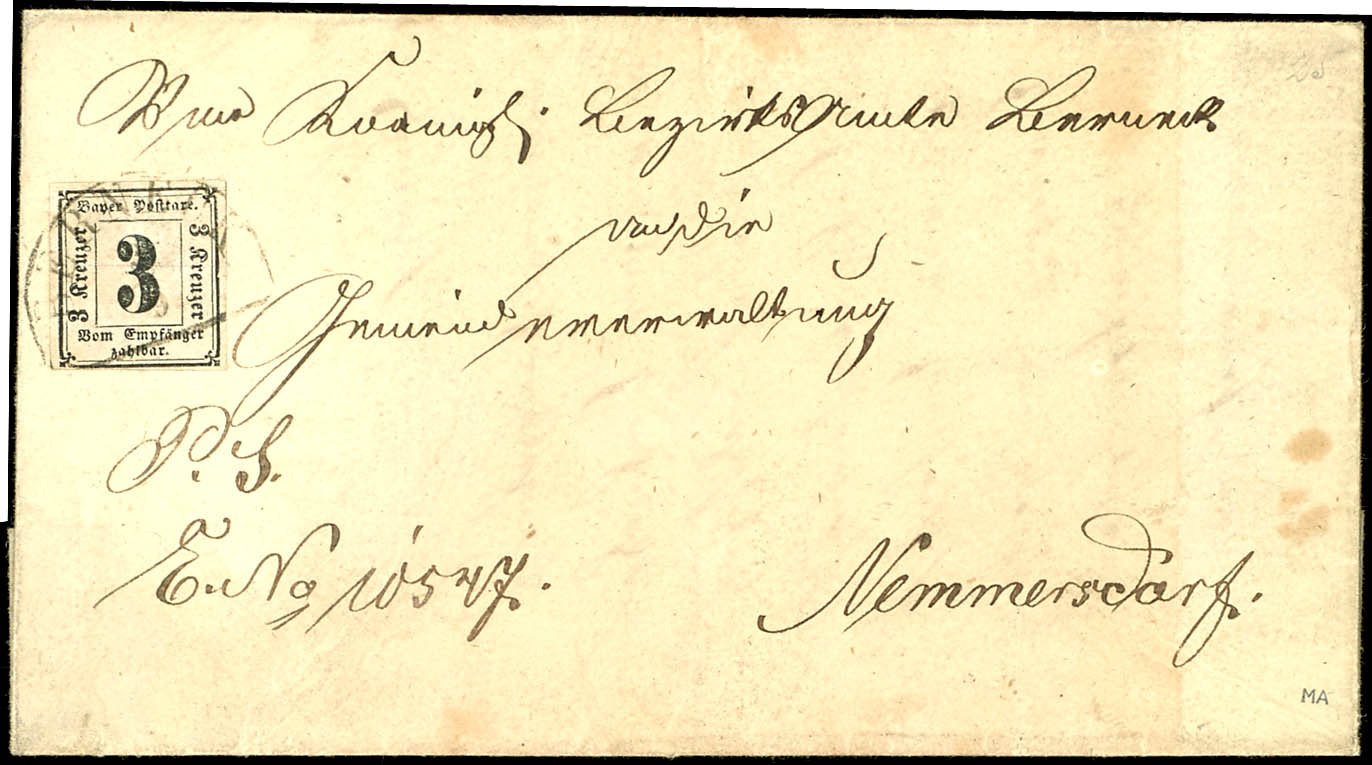 Vom Königl. Bezirksamte Berneck
an die
Gemeindeverwaltung
Bayer. Posttaxe.
3 Kreuzer
3
3 Kreuzer
Vom Empfänger
zahlbar.
P. S.
E. No 10547.
Nemmersdorf.
MA